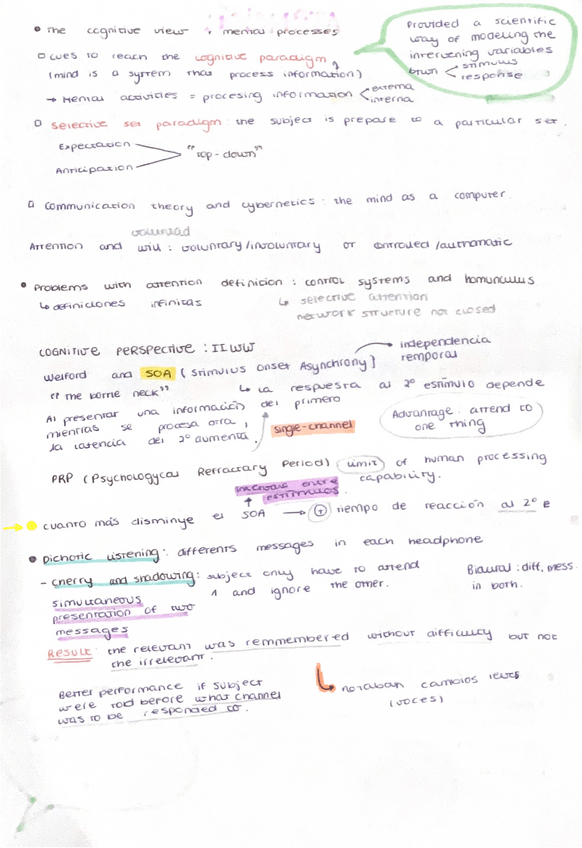 • The cognitive view: mental processes
Provided a scientific
way of modeling the
intervening variables
btwn < stimulus
response
□ cues to reach the cognitive paradigm
(mind is a system that process information)
→ Mental activities = procesing information < externa
interna
□ Selective set paradigm: the subject is prepare to a particular set.
Expectation
Anticipation
"top-down"
□ communication theory and cybernetics: the mind as a computer.
voluntad
Attention and will: voluntary/involuntary or controled/authomatic
• Problems with attention definicion: control systems and homunculus
↳ definiciones infinitas
↳ selective attention
network structure not closed
COGNITIVE PERSPECTIVE: IIWW
Welford and SOA (Stimulus Onset Asynchrony) → independencia
temporal
"The bottle neck"
↳ La respuesta al 2º estimulo depende
del primero
Al presentar una información
mientras se procesa otra,
la latencia del 2º aumenta.
single-channel
Advantage: attend to
one thing
PRP (Psychologycal Refractary Period) limit of human processing
capability.
intervalo entre
estimulos
→ • cuanto más disminye el SOA → (+) tiempo de reacción al 2º e
• Dichotic listening: differents messages in each headphone
- Cherry and shadowing: subject only have to attend
1 and ignore the other.
Biaural: diff. mess.
in both.
simultaneous
presentation of two
messages
Result: the relevant was remmembered without difficulty but not
the irrelevant.
↳ notaban cambios leves
(voces)
Better performance if subject
were told before what channel
was to be responded to.